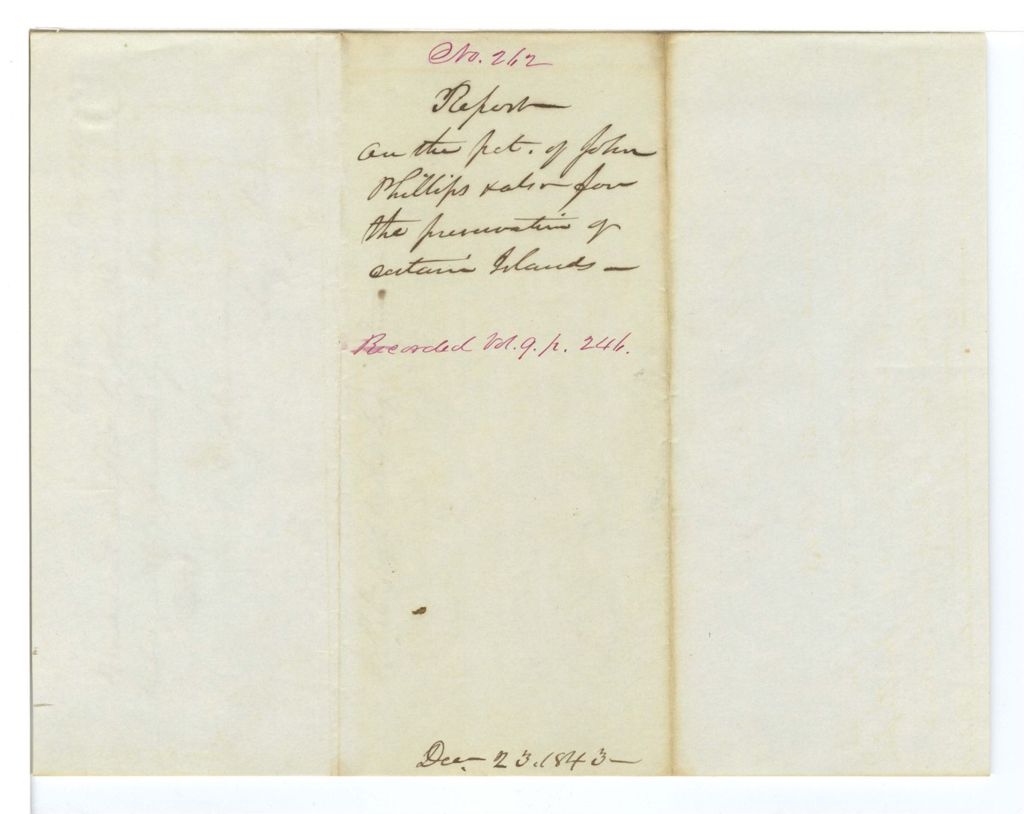 No. 262
Report
on the pet. of John
Phillips & als for
the preservation of
certain Islands —
Recorded Vol. 9. p. 246.
Dec. 23. 1843 —